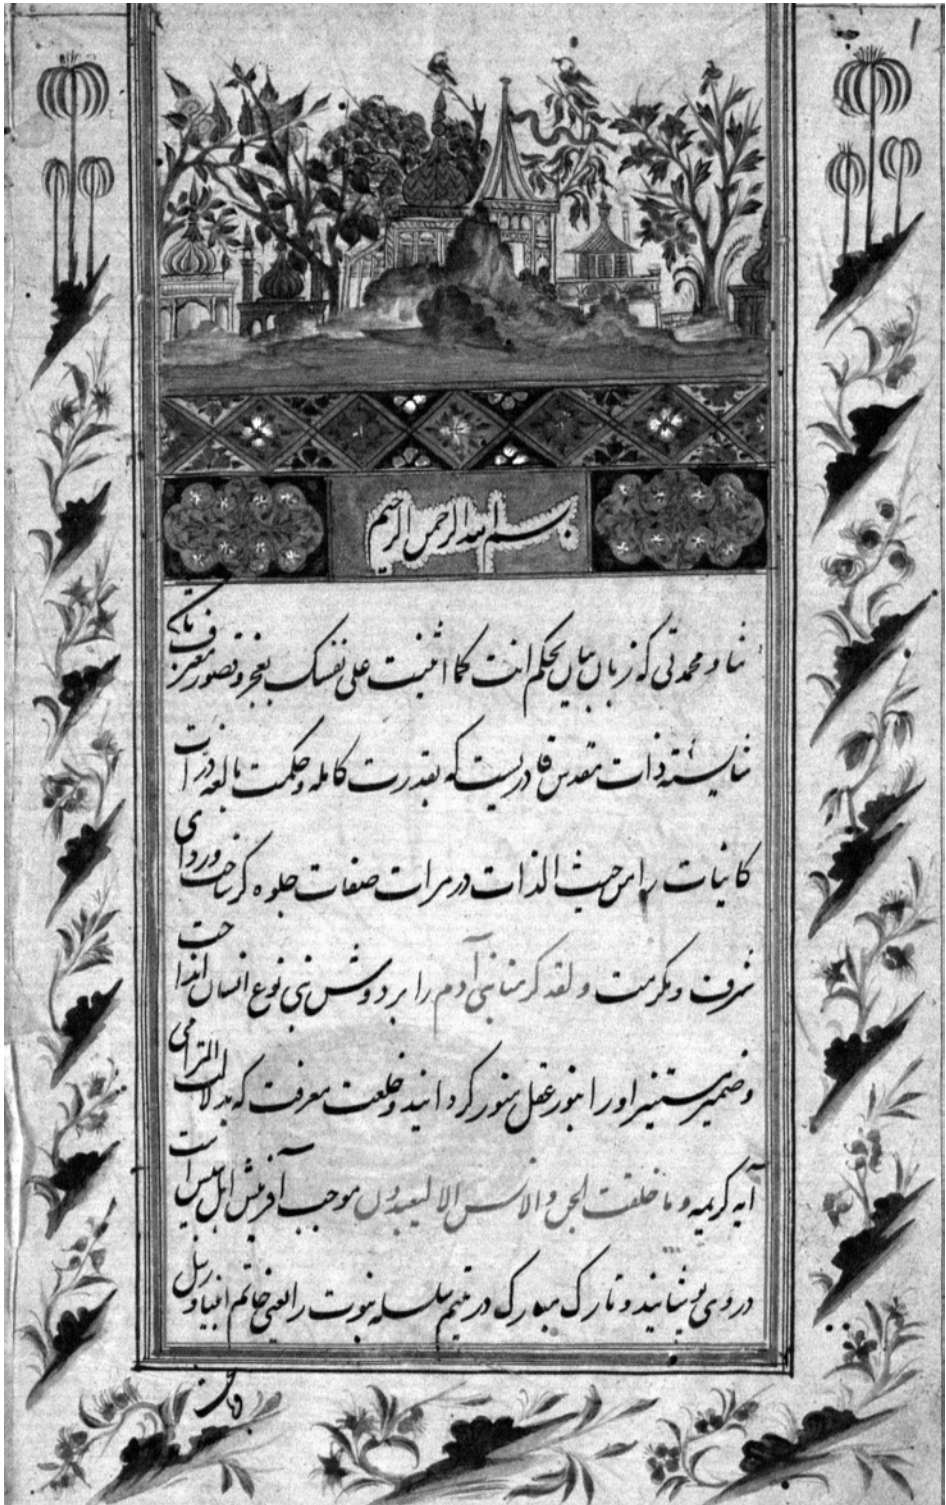 بسم الله الرحمن الرحیم
ثنا و محمدتی که زبان بیان بحکم انت کما اثنیت علی نفسک بعجز و قصور معترف
شایسته ذات مقدس قادریست که بقدرت کامله و حکمت بالغه ذرات
کاینات را من حیث الذات در مرات صفات جلوه کر ساخت و ردای
شرف و مکرمت و لقد کرمنا بنی آدم را بر دوش بنی نوع انسان انداخت
و ضمیر مستنیر او را بنور عقل منور کردانید و خلعت معرفت که بدلالت
آیه کریمه و ما خلقت الجن و الانس الا لیعبدون موجب آفرینش است
در وی پوشانید و تارک مبارک در یتیم سلسله نبوت را یعنی خاتم انبیا و رسل